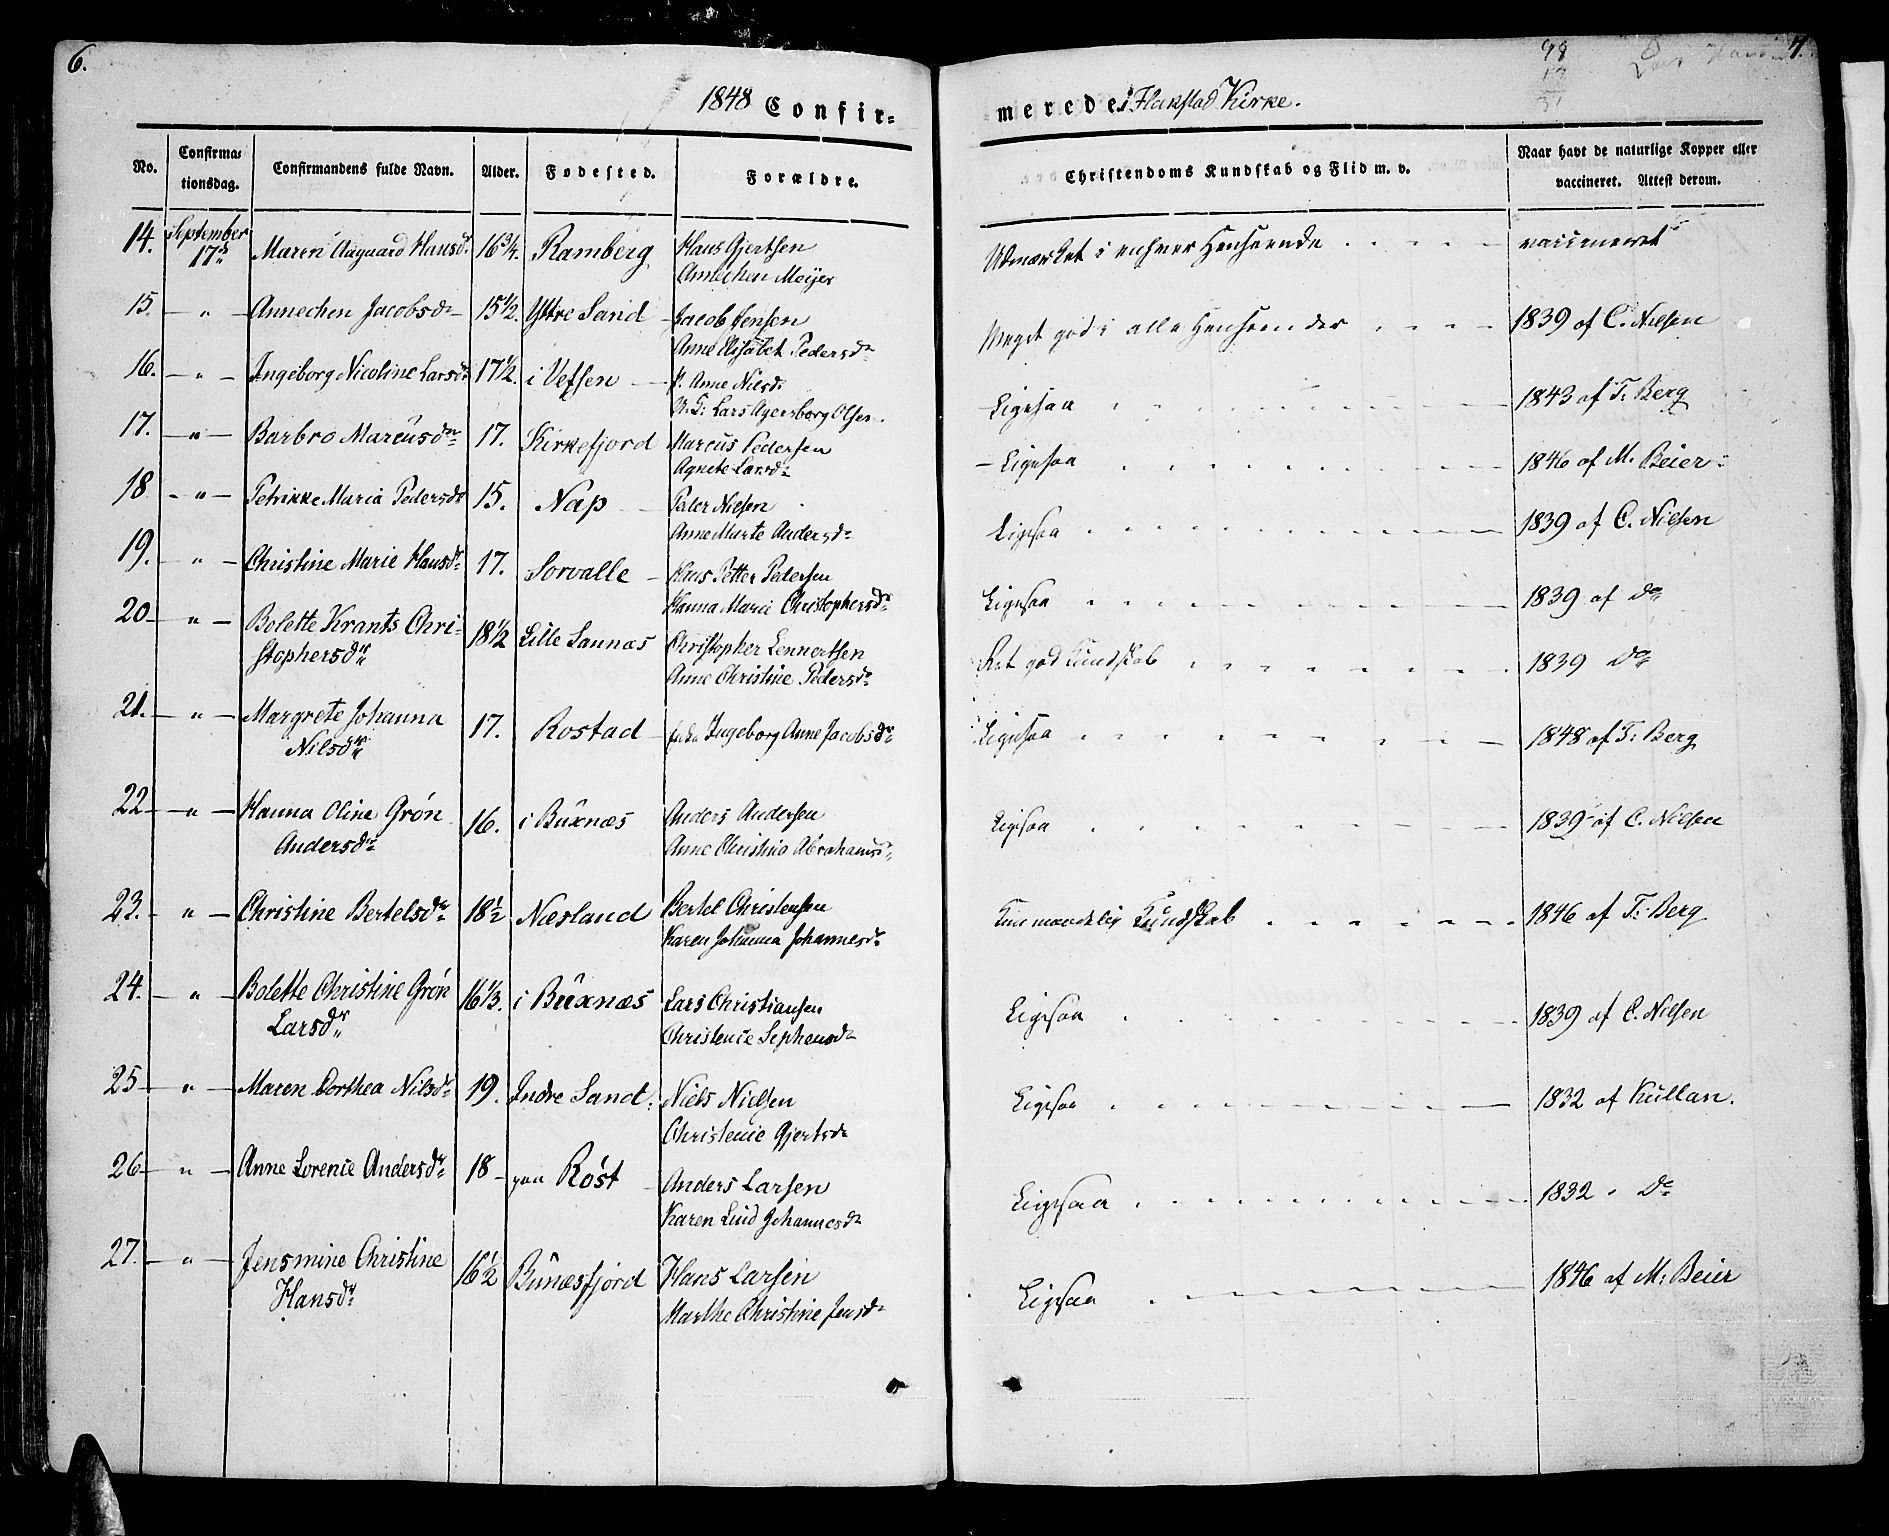 6.
1848 Confir-
No.
Confirma-
tionsdag.
Confirmandens fulde Navn.
Alder.
Fødested.
Forældre.
14. September 17de Maren Aagaard Hansdr 16 3/4. Ramberg Hans Gjertsen
Annechen Meijer
15. - " - Annechen Jacobsdr 15 1/2. Yttre Sand Jacob Jensen
Anne Elisabet Pedersdr
16. - " - Ingeborg Nicoline Larsdr 17 1/2. i Vefsen Anne Nilsd.
U. F: Lars Agersborg Olsen
17. - " - Barbro Marcusdr 17. Kirkefjord Marcus Pedersen
Agnete Larsdr
18 - " - Petrikke Maria Pedersdr 15. Nap Peter Nielsen
Anne Marte Andersdr
19. - " - Christine Marie Hansdr 17. Sorvalle Hans Petter Pedersen
Hanna Marie Christophersdr
20 - " - Bolette Krants Chri-
stophersdr 18 1/2 Lille Sannæs Christopher Lennertsen
Anne Christine Pedersdr
21. - " - Margrete Johanna
Nilsdr 17. Rostad Ingeborg Anne Jacobsdr
22 - " - Hanna Oline Grön
Andersdr 16. i Buxnæs Anders Andersen
Anne Christina Abrahamsd
23. - " - Christine Bertelsdr 18 1/2 Næsland Bertel Christensen
Karen Johanna Johannesdr
24. - " - Bolette Christine Grön
Larsdr 16 1/3. i Buxnæs Lars Christiansen
Christence Sephensdr
25 - " - Maren Dorthea Nilsdr 19. Indre Sand. Niels Nielsen
Christence Gjertsdr
26 - " - Anne Lorence Andersdr 18 - paa Röst Anders Larsen
Karen Lind Johannesdr
27. - " - Jensmine Christine
Hansdr 16 1/2 Bunæsfjord Hans Larsen
Marthe Christine Jensdr
merede i Flakstad Kirke.
98
7.
Christendoms Kundskab og Flid m. v.
Naar havt de naturlige Kopper eller
vaccineret. Attest derom.
Udmærket i enhver Henseende vaccineret
Meget god i alle Henseender 1839 af C. Nielsen
Ligesaa 1843 af T. Berg
- Ligesaa 1846 af M. Beier
Ligesaa 1839 af C. Nielsen
Ligesaa 1839 af Do
Ret god Kundskab 1839 Do
Ligesaa 1848 af T: Berg
Ligesaa 1839 af C. Nielsen
Kun maadelig Kundskab 1846 af T: Berg
Ligesaa 1839 af C. Nielsen
Ligesaa 1832 af Kullan.
Ligesaa 1832 . Do
Ligesaa 1846 af M: Beier